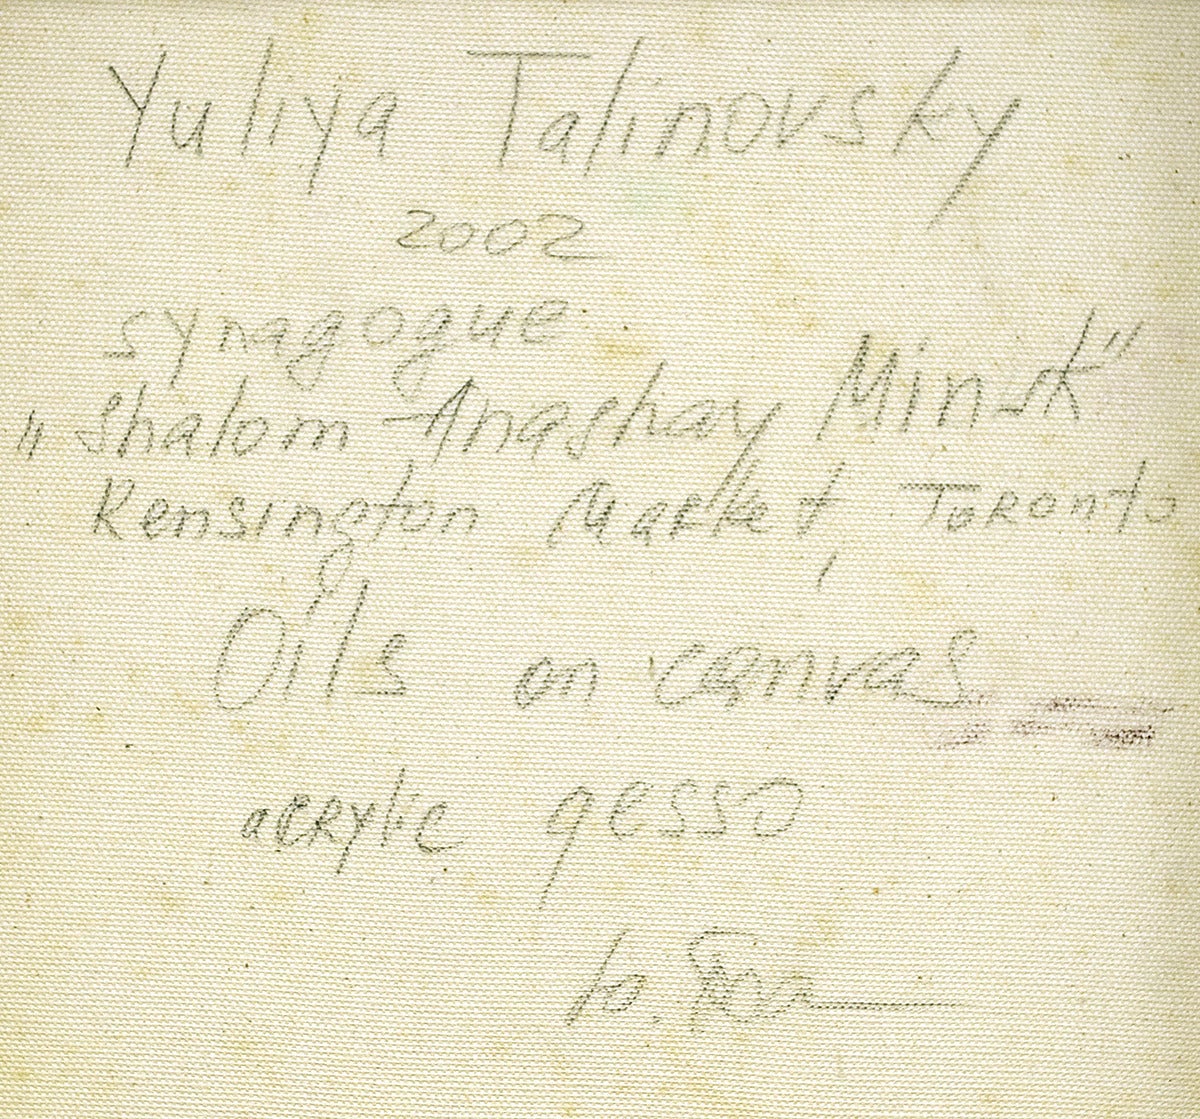 Yuliya Talinovsky
2002
synagogue
„Shalom-Anashay Minsk"
Kensington Market, Toronto
Oils on canvas
acrylic gesso